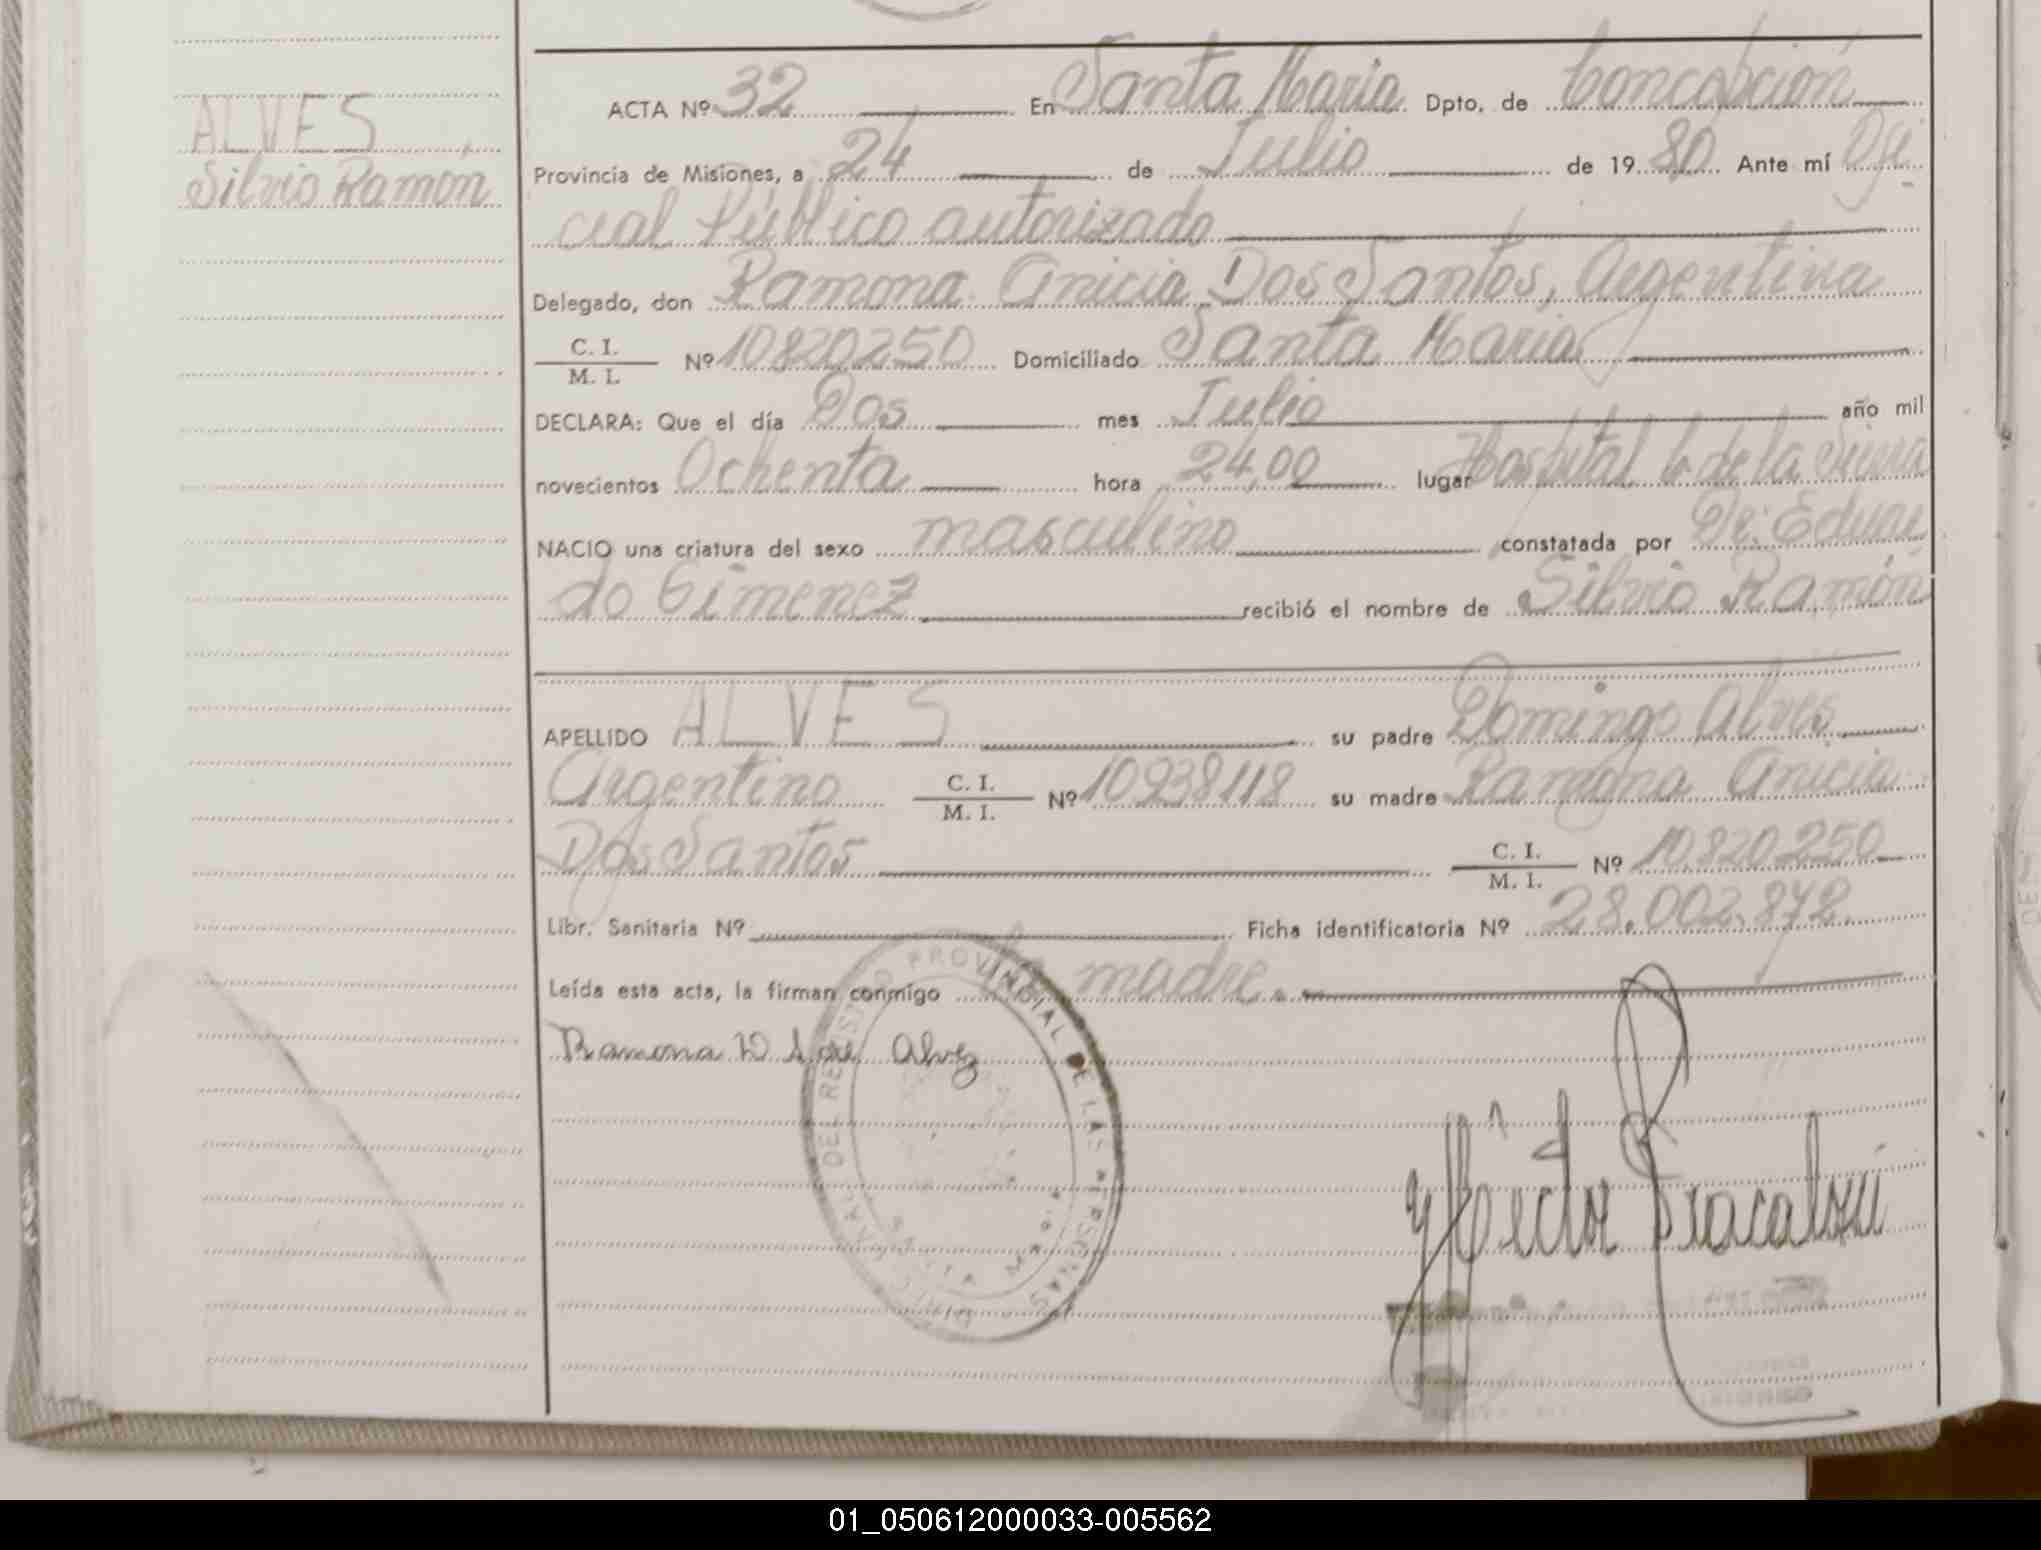 ALVES
Silvio Ramón
ACTA Nº 32 En Santa Maria Dpto, de Concepción
Provincia de Misiones, a 24 de Julio de 1980 Ante mí Ofi-
cial Público autorizado
Delegado, don Ramona Anicia Dos Santos, Argentina
C. I. / M. I. Nº 10820250 Domiciliado Santa Maria
DECLARA: Que el día Dos mes Julio año mil
novecientos Ochenta hora 24,00 lugar Hospital C. de la Sierra
NACIO una criatura del sexo masculino constatada por Dr. Eduar
do Gimenez recibió el nombre de Silvio Ramón
APELLIDO ALVES su padre Domingo Alves
Argentino C. I. / M. I. Nº 10938118 su madre Ramona Anicia
Dos Santos C. I. / M. I. Nº 10820250
Libr. Sanitaria Nº Ficha identificatoria Nº 28.002.872
Leída esta acta, la firman conmigo la madre.
Ramona D S de Alvez
REGISTRO PROVINCIAL DE LAS PERSONAS
SANTA MARIA
Héctor
01_050612000033-005562